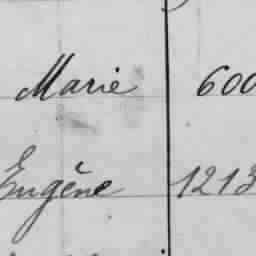 Marie 600
Eugène 1213